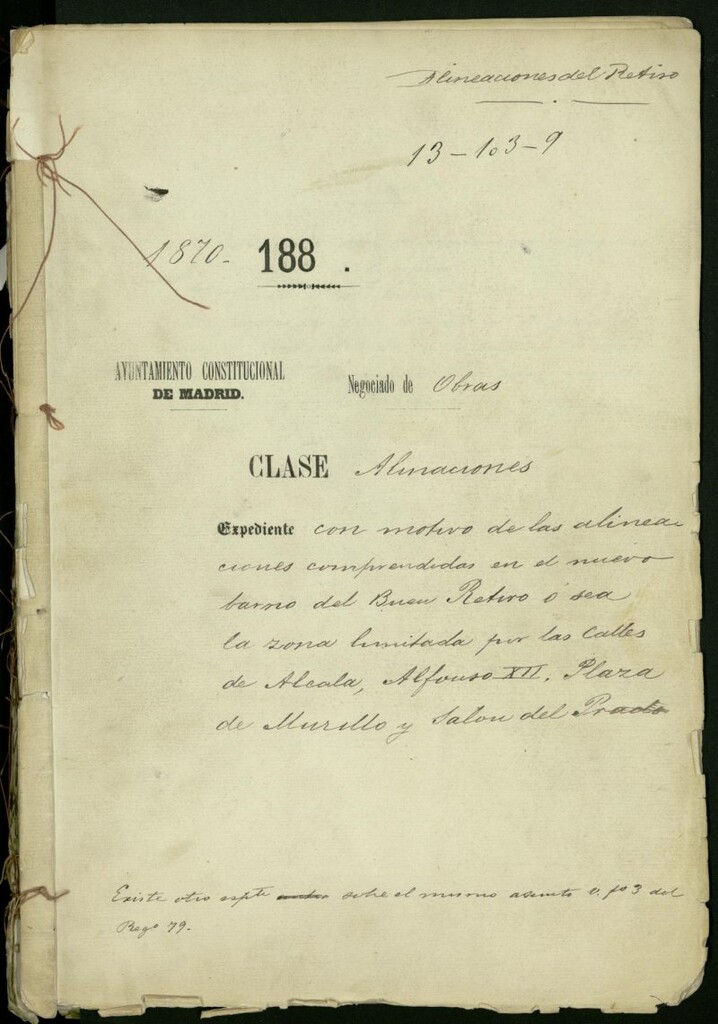 Alineaciones del Retiro
13-103-9
1870- 188.
AYUNTAMIENTO CONSTITUCIONAL
DE MADRID.
Negociado de Obras
CLASE Alineaciones
Expediente con motivo de las alinea-
ciones comprendidas en el nuevo
barrio del Buen Retiro ó sea
la zona limitada por las Calles
de Alcala, Alfonso XII, Plaza
de Murillo y Salon del Prado
Existe otro espte sobre el mismo asunto v. fº 3 del
Regº 79.